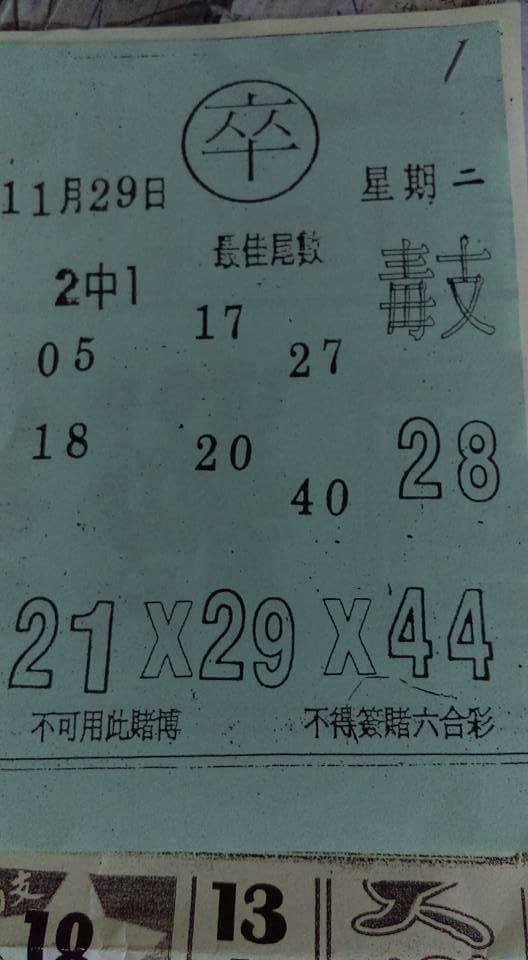 1
卒
11月29日 星期二
最佳尾數
2中1
05 17 27
18 20 40
28
21X29X44
不可用此賭博 不得簽賭六合彩
18 13